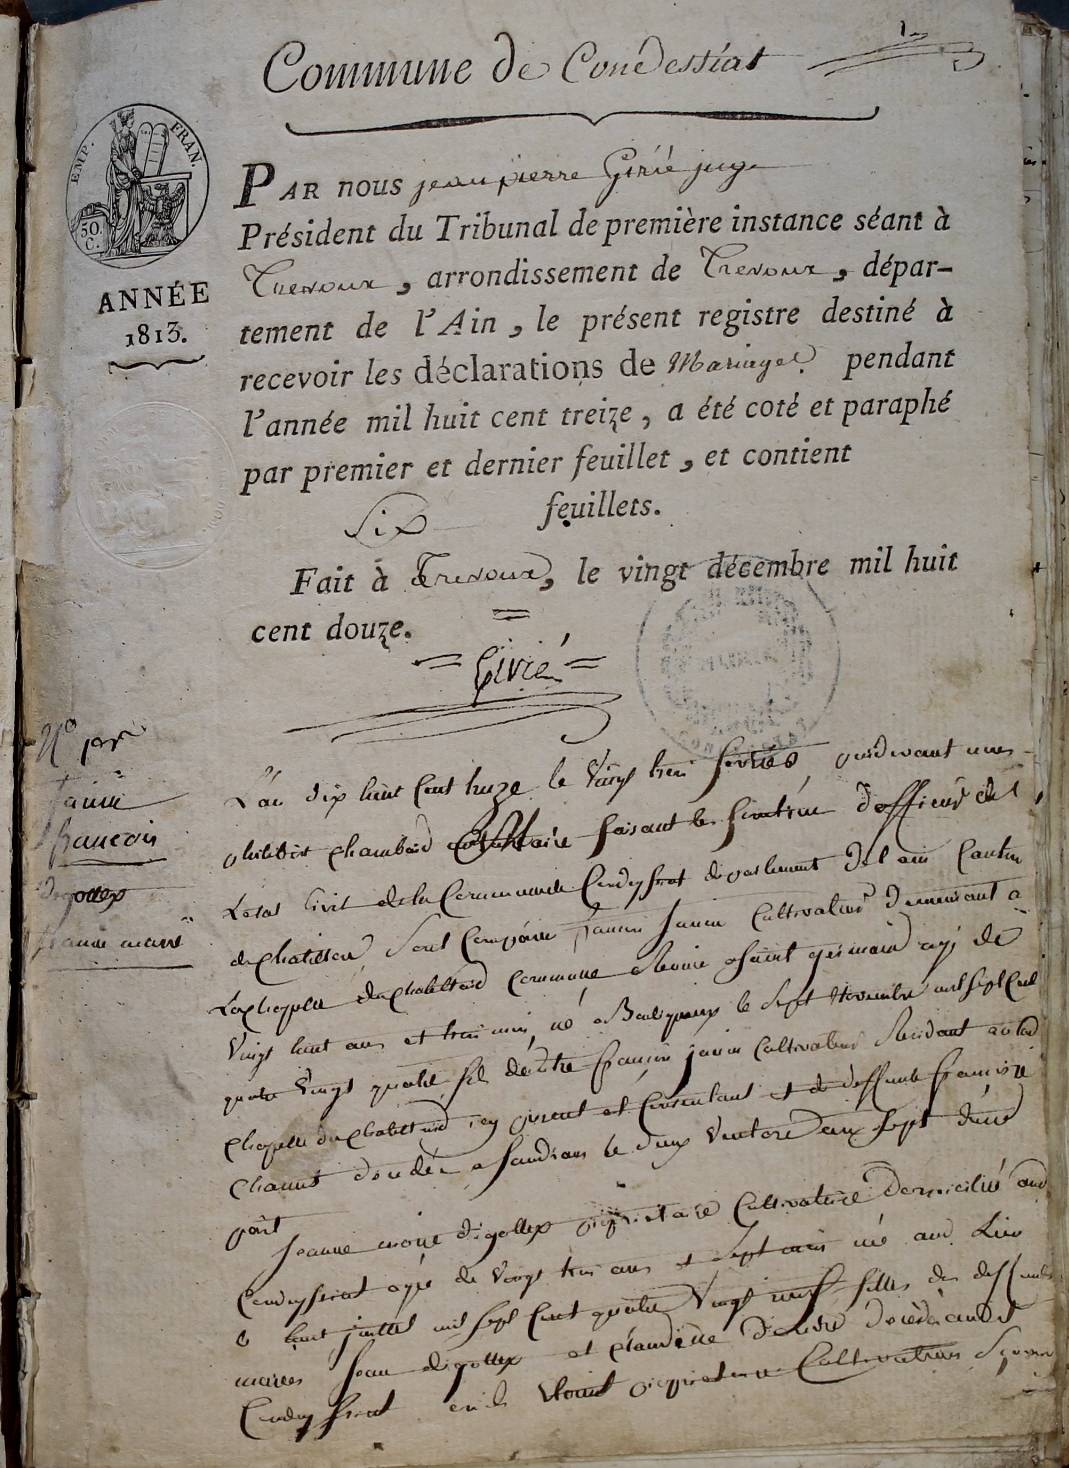 Commune de Condessiat
EMP. FRAN.
50.
C.
ANNÉE
1813.
PAR nous jean pierre Girié juge
Président du Tribunal de première instance séant à
Trevoux, arrondissement de Trevoux, dépar-
tement de l'Ain, le présent registre destiné à
recevoir les déclarations de Mariages pendant
l'année mil huit cent treize, a été coté et paraphé
par premier et dernier feuillet, et contient
Six feuillets.
Fait à Trevoux, le vingt décembre mil huit
cent douze.
Girié
N.o pr
Janin
francois
digollex
jeanne marie
L'an dix huit cent treize le vingt trois fevrier, pardevant nous
philibert chambard faisant les fonction d'officier de
Letat Civil de la Commune de Condeyssiat departement de l'ain Canton
de chatillon Sont Comparu francois Janin Cultivateur demeurant a
Lachapelle du chatelard Commune Reunie a saint germain agé de
vingt huit ans et trois mois, né a Bouligneux le Sept Novembre mil Sept Cent
quatre vingt quatre fils de francois janin Cultivateur Residant a la d
chapelle du chatelard, icy present et Consentant et de deffunte francoise
chanut décédée a Sandrans le deux Ventose an Sept d'une
part
Jeanne marie digollex propriétaire Cultivatrice Domiciliée aud
Condeyssiat agée de vingt trois ans et Sept mois née aud. Lieu
le huit juillet mil Sept Cent quatre vingt neuf fille des deffunts
mariés Jean digollex et claudine décédé aud
Condeyssiat propriétaire Cultivateur